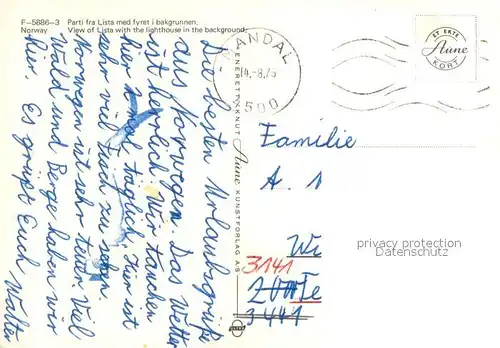 F-5886-3 Parti fra Lista med fyret i bakgrunnen.
Norway View of Lista with the lighthouse in the background.
Die besten Urlaubsgrüße
aus Norwegen. Das Wetter
ist herrlich. Wir tauchen
hier 2 mal täglich, hier ist
sehr viel Fisch zu sehen.
Norwegen ist sehr teuer. Viel
Wald und Berge haben wir
hier. Es grüßt Euch Walter
MANDAL
14.-8.75
4500
ET EKTE
Aune
KORT
ENERETT: KNUT Aune KUNSTFORLAG AS
Familie
A. 1
Wi
3141
Te
3441
privacy protection
Datenschutz